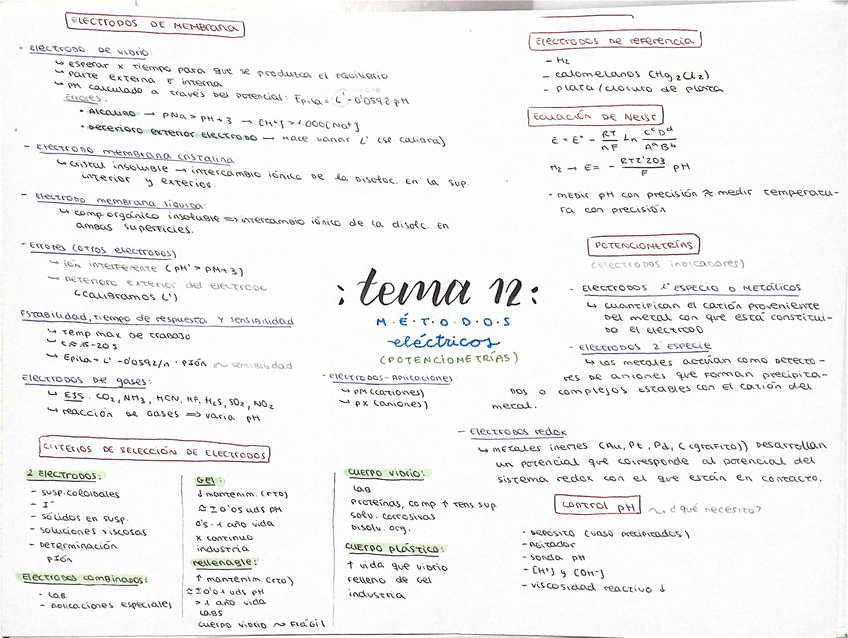 ELECTRODOS DE MEMBRANA
- ELECTRODO DE VIDRIO:
↳ esperar x tiempo para que se produzca el equilibrio
↳ parte externa e interna
↳ pH calculado a través del potencial: Epila = L' - 0'0592 pH
Errores:
• Alcalino → pNa > pH + 3 → [H+] > 1.000 [Na+]
• Deterioro exterior electrodo → Hace variar L' (se calibra)
- ELECTRODO MEMBRANA CRISTALINA:
↳ cristal insoluble → intercambio iónico de la disoluc. en la sup.
interior y exterior.
- ELECTRODO MEMBRANA LÍQUIDA:
↳ comp. orgánico insoluble ⇒ intercambio iónico de la disolc. en
ambas superficies.
- ERRORES (OTROS ELECTRODOS)
→ ión interferente (pH' > pM + 3)
→ Deterioro exterior del electrodo
(calibramos L')
Estabilidad, tiempo de respuesta y sensibilidad
↳ Temp. max de trabajo
↳ t ≈ 15-20 s
↳ Epila = L' - 0'0592/n · pIón ~ sensibilidad
ELECTRODOS DE GASES:
↳ EJS: CO2, NH3, HCN, HF, H2S, SO2, NO2
↳ reacción de gases ⇒ varía pH
: tema 12 :
M·É·T·O·D·O·S
eléctricos
(POTENCIOMETRÍAS)
- ELECTRODOS-APLICACIONES:
↳ pM (cationes)
↳ pX (aniones)
ELECTRODOS DE REFERENCIA
- H2
- calomelanos (Hg2Cl2)
- plata/cloruro de plata
ECUACIÓN DE NERST
E = E° - RT/nF Ln C^c D^d/A^a B^b
H2 → E = - RT2'303/F pH
• medir pH con precisión ≈ medir temperatu-
ra con precisión
POTENCIOMETRÍAS
(electrodos indicadores)
- ELECTRODOS 1ª ESPECIE O METÁLICOS
↳ cuantifican el catión proveniente
del metal con que está constitui-
do el electrodo
- ELECTRODOS 2ª ESPECIE
↳ Los metales actúan como detecto-
res de aniones que forman precipita-
dos o complejos estables con el catión del
metal.
- Electrodos redox
↳ Metales inertes (Au, Pt, Pd, C (grafito)) desarrollan
un potencial que corresponde al potencial del
sistema redox con el que están en contacto.
CRITERIOS DE SELECCIÓN DE ELECTRODOS
2 ELECTRODOS:
- susp. coloidales
- I-
- sólidos en susp.
- soluciones viscosas
- determinación
pIón
Electrodos combinados:
- LAB
- aplicaciones especiales
GEL:
↓ mantenim. (rto)
≈ ±0'05 uds pH
0'5-1 año vida
x continuo
industria
rellenable:
↑ mantenim. (rto)
≈ ±0'01 uds pH
> 1 año vida
LABS
cuerpo vidrio ~ Frágil
CUERPO VIDRIO:
LAB
Proteínas, comp ↑ tens sup
solv. corrosivas
Disolv. org.
CUERPO PLÁSTICO:
↑ vida que vidrio
relleno de gel
industria
CONTROL pH ~ ¿qué necesito?
- Depósito (vaso precipitados)
- Agitador
- sonda pH
- [H+] y [OH-]
- viscosidad reactivo ↓